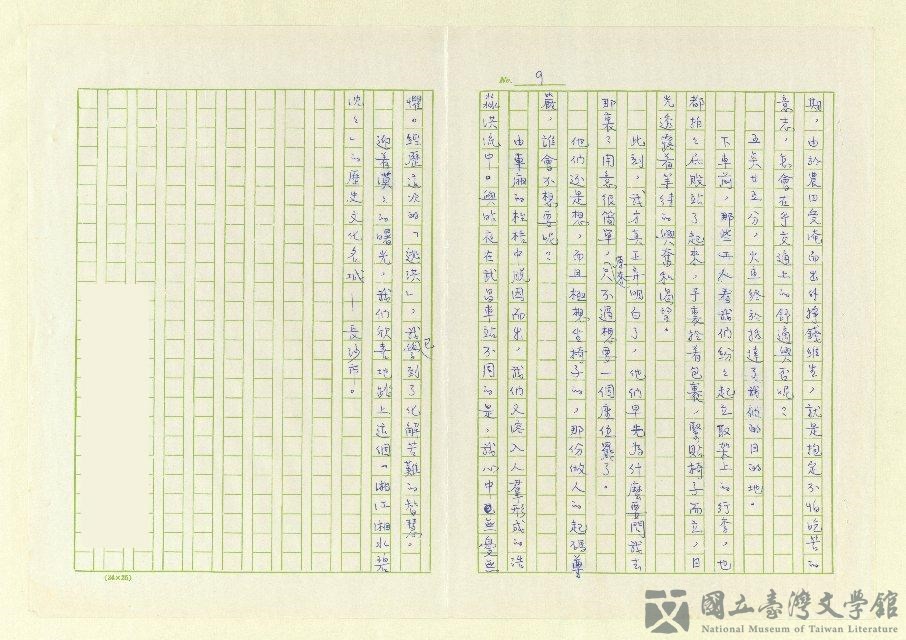 No. 9
期,由於農田受淹而出外掙錢維生,就是抱定不怕吃苦的
意志,怎會在乎交通上的舒適與否呢?
五哭廿五分,火車終於抵達了我們的目的地。
下車前,那些工人看我們紛紛起立取架上的行李,也
都拍拍屁股站了起來,手裏拎着包裹,緊貼椅子而立,目
光透露着等待的興奮和渴望。
此刻,我才真正弄明白了,他們早先為什麼要問我去
那裏?用意很簡單,只不過想要一個座位罷了。
他們還是想,而且極想坐椅子的,那份做人的起碼尊
嚴,誰會不想要呢?
由車廂的桎梏中脫困而出,我們又滙入人羣形成的浩
淼洪流中。與昨夜在武昌車站不同的是,我心中已無憂無
懼。經歷這次的「逃洪」,我已學到了化解苦難的智慧。
迎着漠漠的曙光,我們欣喜地踏上這個「湘江湘水碧
沈沈」的歷史文化名城—長沙市。
(24×25)
國立臺灣文學館
National Museum of Taiwan Literature